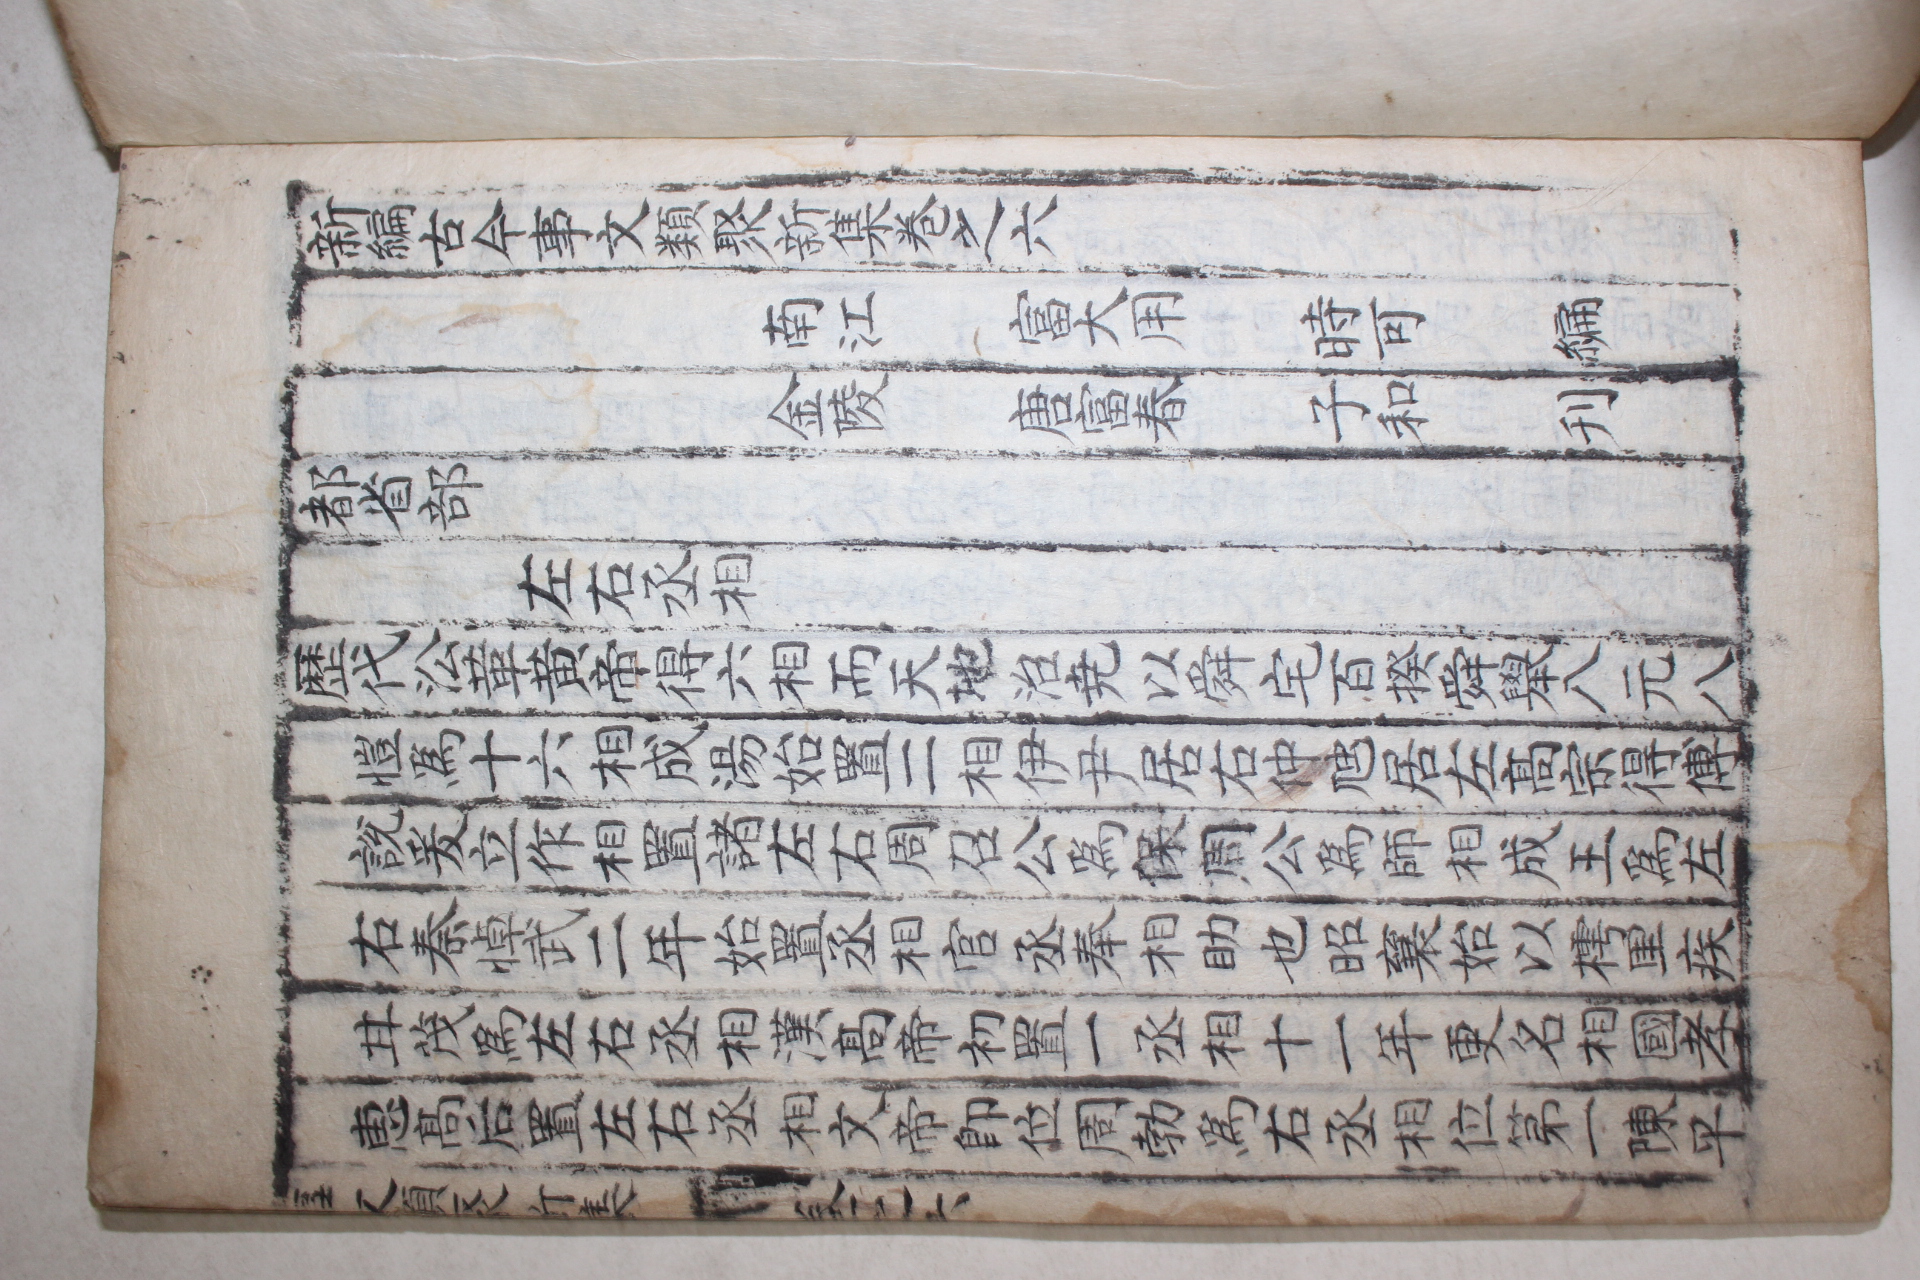 新編古今事文類聚新集卷之六
南江 富大用 時可 編
金陵 唐富春 子和 刊
都省部
左右丞相
歷代沿革黃帝得六相而天地治堯以舜宅百揆舜擧八元八
愷爲十六相成湯始置二相伊尹居右仲虺居左高宗得傅
說爰立作相置諸左右周召公爲保周公爲師相成王爲左
右秦悼武二年始置丞相官丞奉相助也昭襄始以樗里疾
甘茂爲左右丞相漢高帝初置一丞相十一年更名相國孝
惠高后置左右丞相文帝卽位周勃爲右丞相位第一陳平
事文類聚新集 卷之六